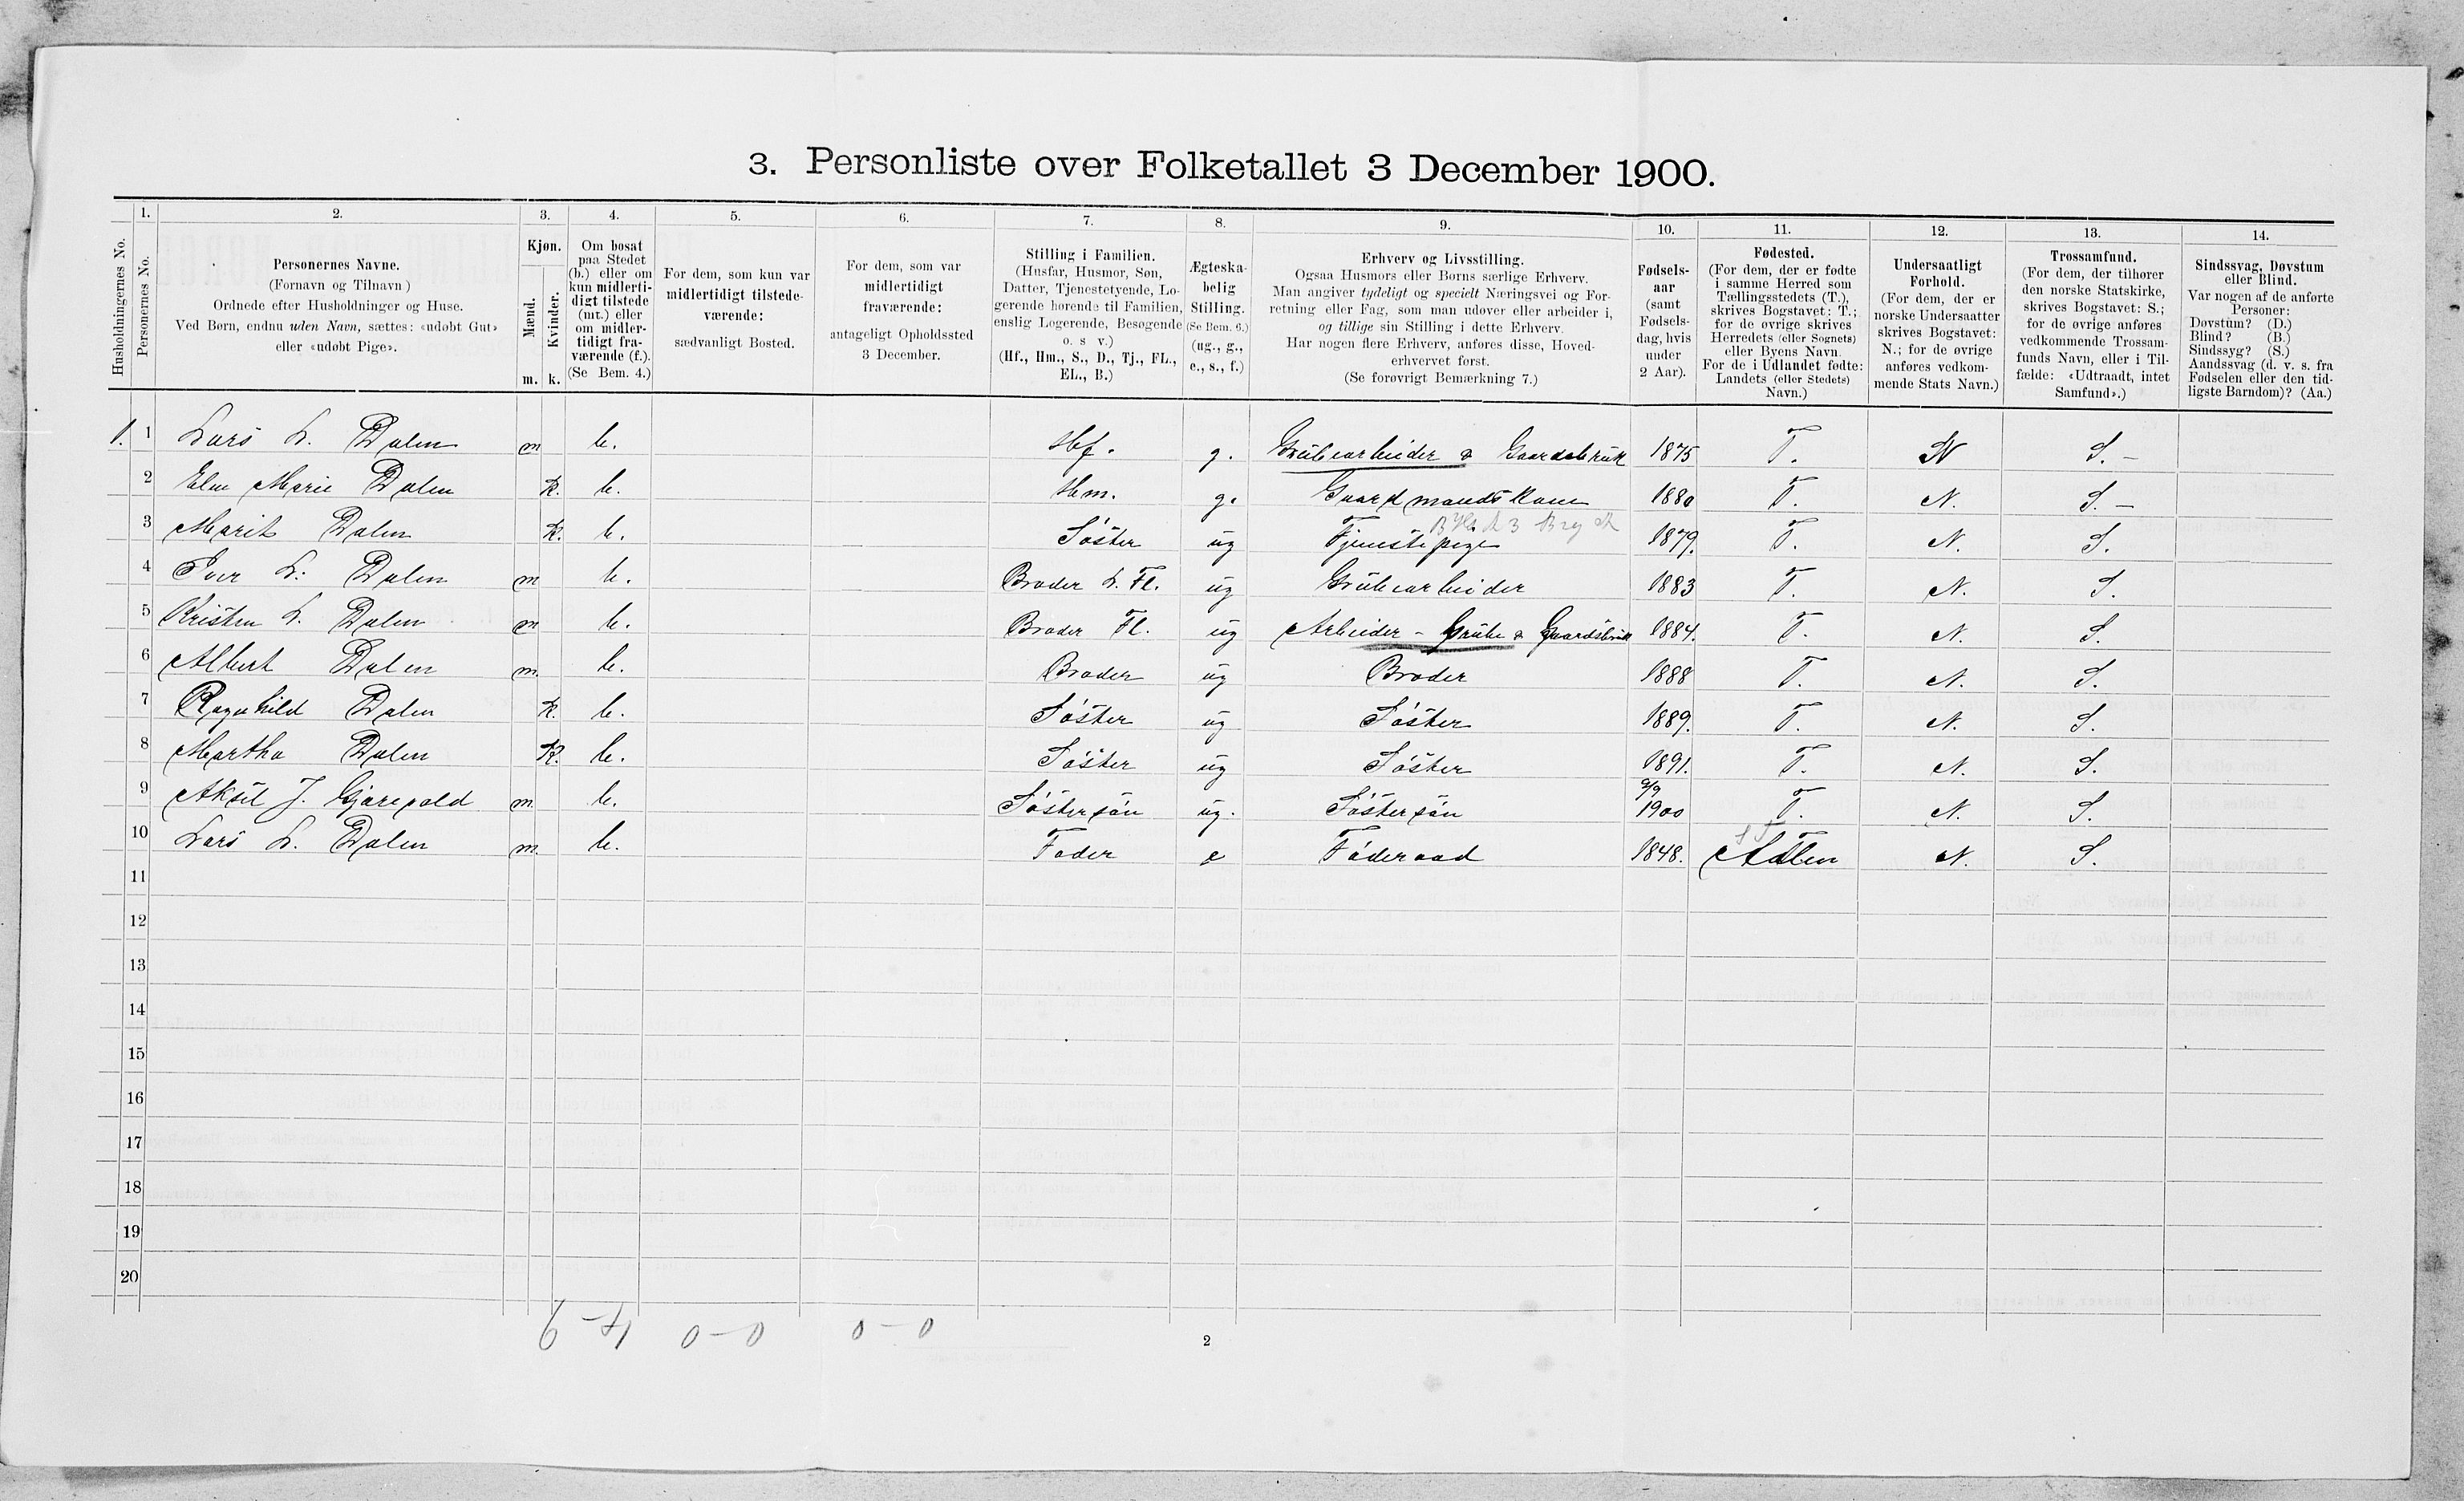 3. Personliste over Folketallet 3 December 1900.
Husholdningernes No.
1. Personernes No.
2. Personernes Navne.
(Fornavn og Tilnavn)
Ordnede efter Husholdninger og Huse.
Ved Børn, endnu uden Navn, sættes: «udøbt Gut»
eller «udøbt Pige».
3. Kjøn.
Mænd. Kvinder.
m. k.
4. Om bosat
paa Stedet
(b.) eller om
kun midlerti-
digt tilstede
(mt.) eller
om midler-
tidigt fra-
værende (f.).
(Se Bem. 4.)
5. For dem, som kun var
midlertidigt tilstede-
værende:
sædvanligt Bosted.
6. For dem, som var
midlertidigt
fraværende:
antageligt Opholdssted
3 December.
7. Stilling i Familien.
(Husfar, Husmor, Søn,
Datter, Tjenestetyende, Lo-
gerende hørende til Familien,
enslig Logerende, Besøgende
o. s v.)
(Hf., Hm., S., D., Tj., FL.,
EL., B.)
8. Ægteska-
belig
Stilling.
(Se Bem. 6.)
(ug., g.,
e., s., f.)
9. Erhverv og Livsstilling.
Ogsaa Husmors eller Børns særlige Erhverv.
Man angiver tydeligt og specielt Næringsvei og For-
retning eller Fag, som man udøver eller arbeider i,
og tillige sin Stilling i dette Erhverv.
Har nogen flere Erhverv, anføres disse, Hoved-
erhvervet først.
(Se forøvrigt Bemærkning 7.)
10. Fødsels-
aar
(samt
Fødsels-
dag, hvis
under
2 Aar).
11. Fødested.
(For dem, der er fødte
i samme Herred som
Tællingsstedets (T.),
skrives Bogstavet: T.;
for de øvrige skrives
Herredets (eller Sognets)
eller Byens Navn.
For de i Udlandet fødte:
Landets (eller Stedets)
Navn.)
12. Undersaatligt
Forhold.
(For dem, der er
norske Undersaatter
skrives Bogstavet:
N.; for de øvrige
anføres vedkom-
mende Stats Navn.)
13. Trossamfund.
(For dem, der tilhører
den norske Statskirke,
skrives Bogstavet: S.;
for de øvrige anføres
vedkommende Trossam-
funds Navn, eller i Til-
fælde: «Udtraadt, intet
Samfund».)
14. Sindssvag, Døvstum
eller Blind.
Var nogen af de anførte
Personer:
Døvstum? (D.)
Blind? (B.)
Sindssyg? (S.)
Aandssvag (d. v. s. fra
Fødselen eller den tid-
ligste Barndom)? (Aa.)
1. 1 Lars L. Dalen m b. Hf. g. Grubearbeider & Gaardsbruk 1875 T. N S. –
2 Marie Dalen k. b. Hm. g. Gaardmandskone 1880 T. N. S. –
3 Marit Dalen k. b. Söster ug Tjenestepige 1879. T. N. S.
4 Iver L. Dalen m b. Broder L. Fl. ug Grubearbeider 1883 T. N. S.
5 Kristen L. Dalen m b. Broder Fl. ug Arbeider – Grube & Gaardsbruk 1884. T. N. S.
6 Albert Dalen m. b. Broder ug Broder 1888 T. N. S.
7 Ragnhild Dalen k. b. Söster ug Söster 1889. T. N. S.
8 Martha Dalen k. b. Söster ug Söster 1891. T. N. S.
9 Aksel J. Gjærevold m. b. Söstersön ug. Söstersön 1900 T. N. S.
10 Lars L. Dalen m. b. Fader e Föderaad 1848. Aalen N. S.
11
12
13
14
15
16
17
18
19
20
0 – 0 0 – 0
2